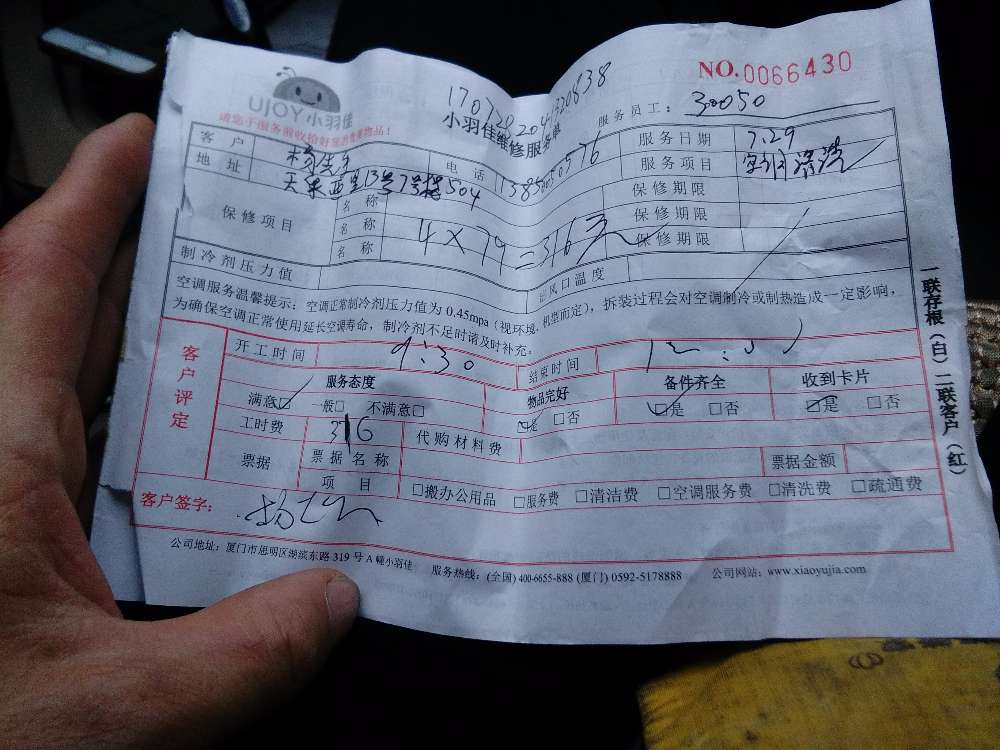 NO.0066430
UJOY小羽佳
小羽佳维修服务单
服务员工: 30050
请您于服务前收拾好贵重物品!
客户 电话 服务日期 7.29
地址 13号7号楼504 服务项目
保修项目 名称 保修期限
名称 4×79=316元 保修期限
名称 保修期限
制冷剂压力值 出风口温度
空调服务温馨提示: 空调正常制冷剂压力值为 0.45mpa (视环境、机型而定), 拆装过程会对空调制冷或制热造成一定影响,
为确保空调正常使用延长空调寿命, 制冷剂不足时请及时补充。
客户评定
开工时间 9:30 结束时间
服务态度 物品完好 备件齐全 收到卡片
满意☑ 一般□ 不满意□ ☑是 □否 ☑是 □否 ☑是 □否
工时费 316 代购材料费
票据 票据名称 票据金额
项目 □搬办公用品 □服务费 □清洁费 □空调服务费 □清洗费 □疏通费
客户签字:
公司地址: 厦门市思明区湖滨东路 319 号 A 幢小羽佳 服务热线: (全国) 400-6655-888 (厦门) 0592-5178888 公司网站: www.xiaoyujia.com
一联存根(白)二联客户(红)